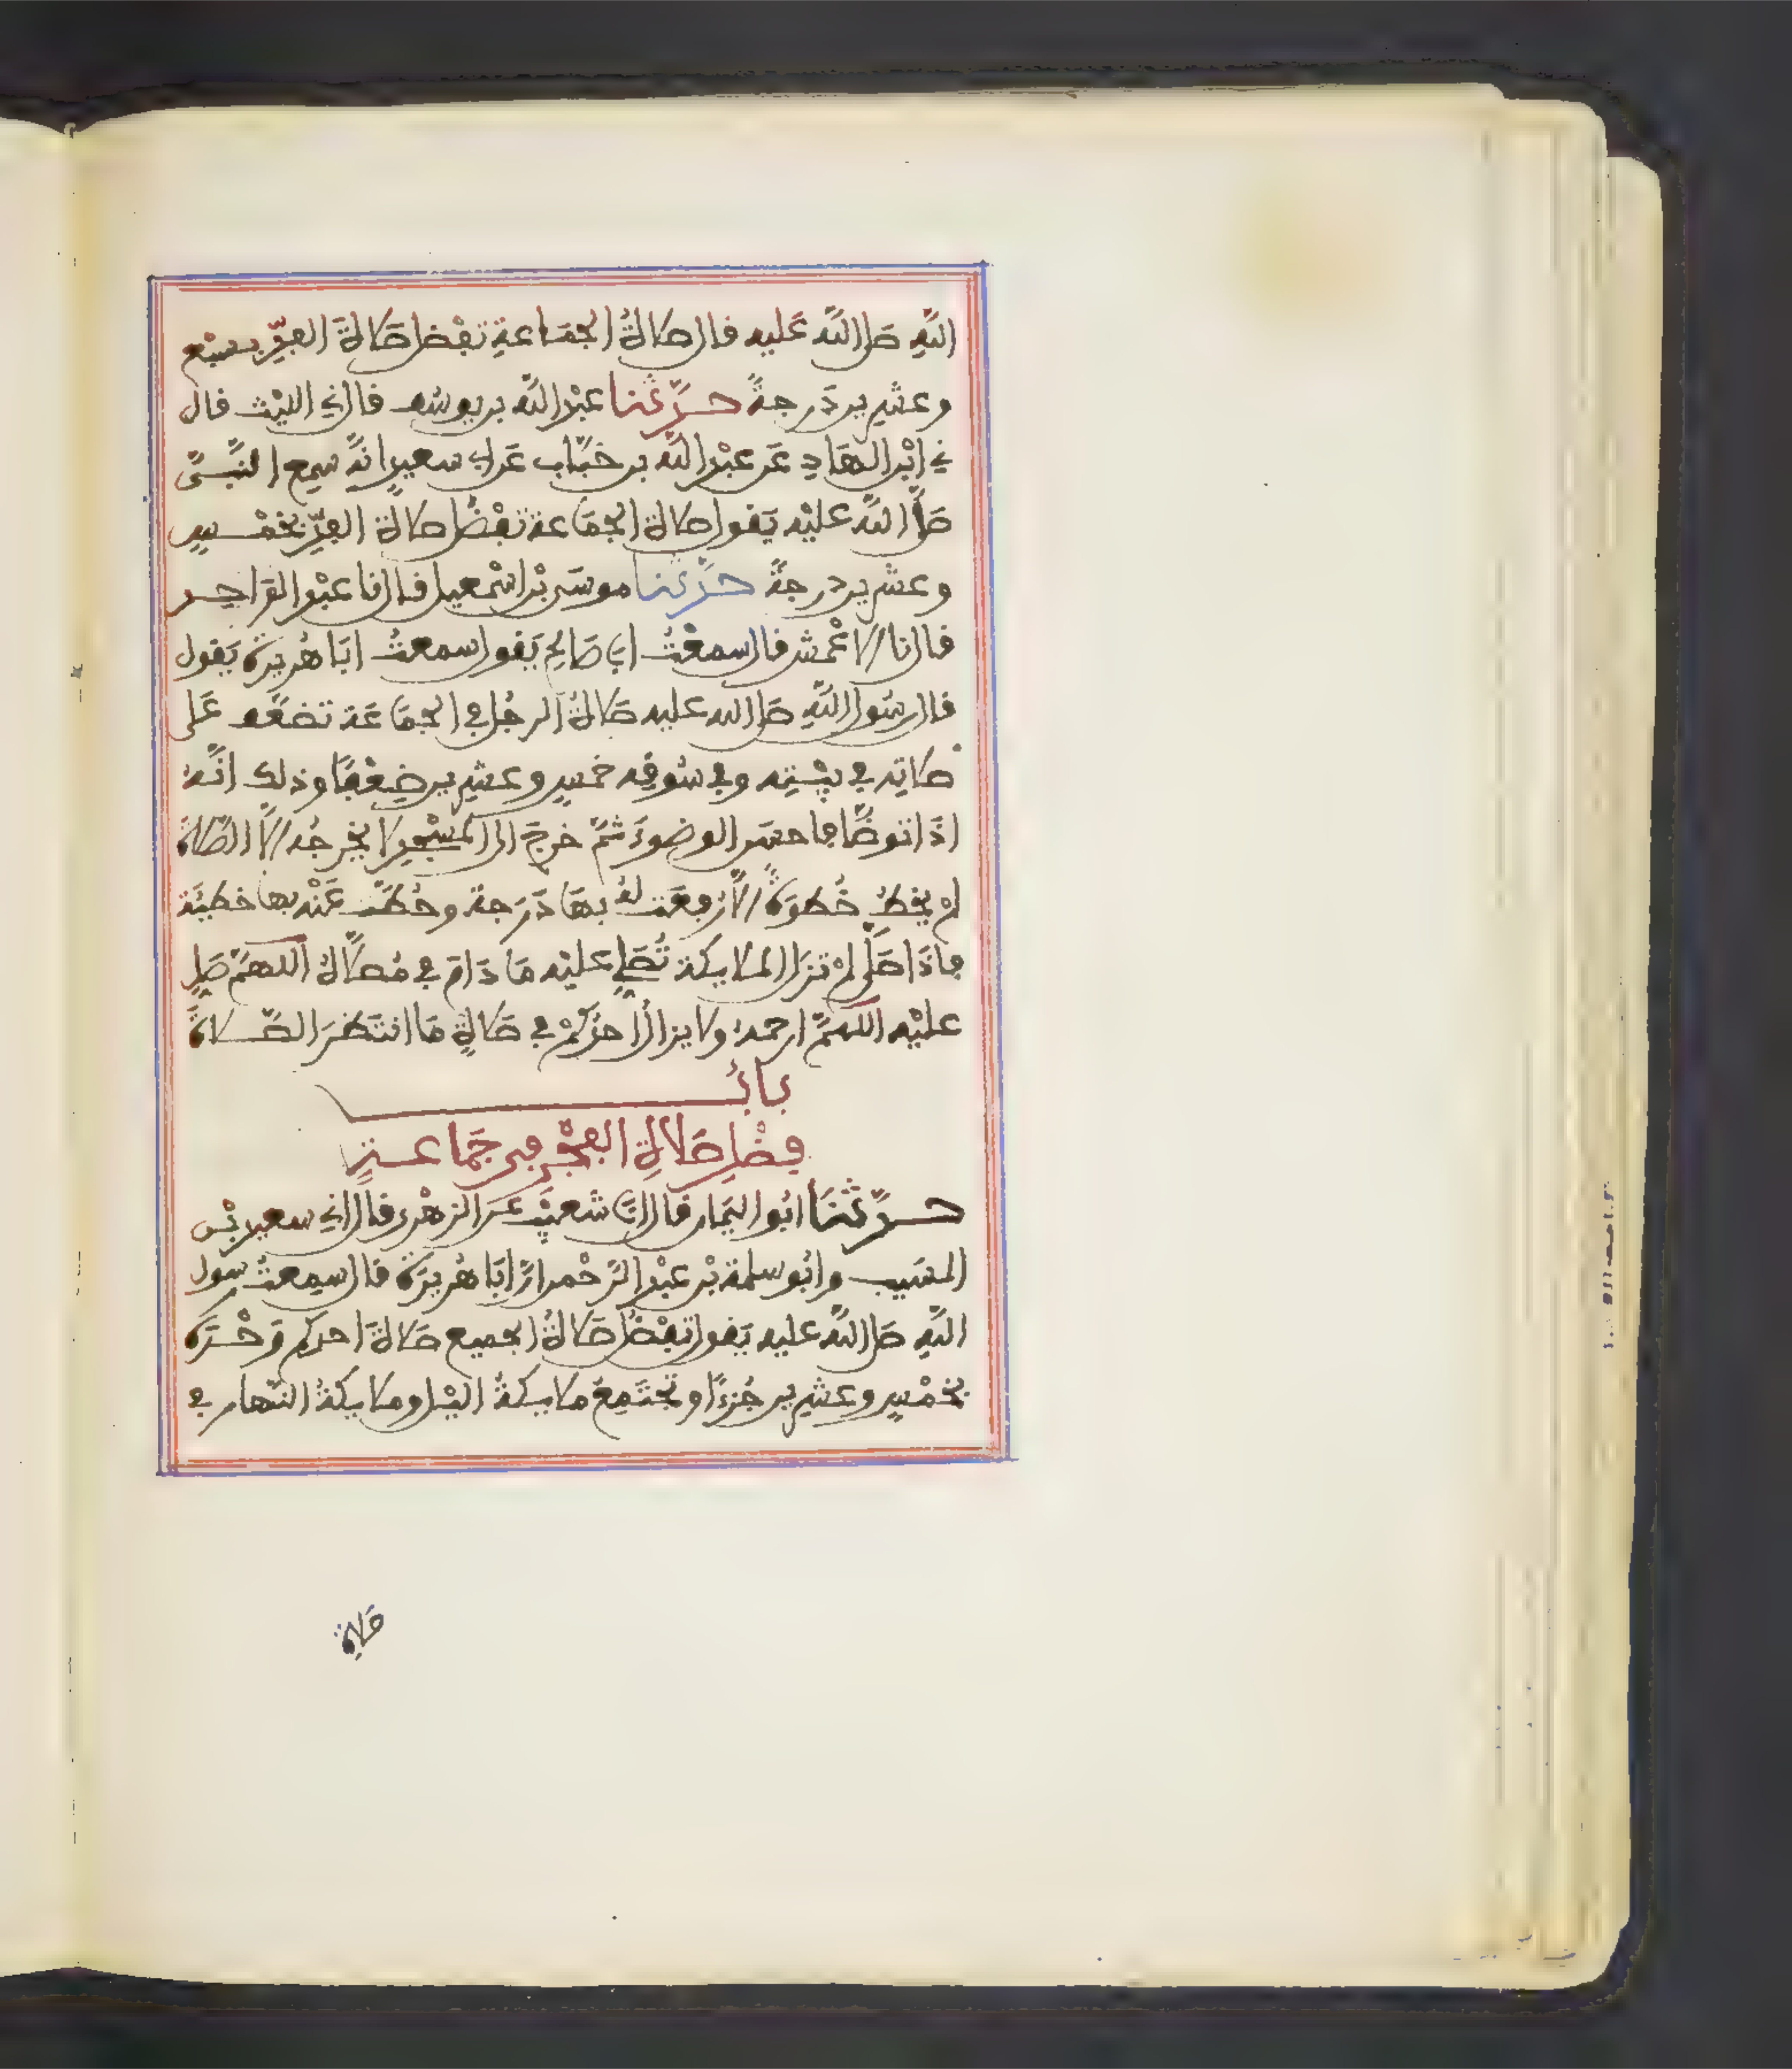 اللَّهِ صَلى اللَّه عَليه قال صَلاةُ الجمَاعةِ تفْضل صَلاةَ الفذِّ بسبْع
وعشرين دَرجةً حدَّثنا عبْد اللَّه بن يوسُف قال ني الليْث قال
ني ابْن الهَادِ عَن عبْد اللَّه بن خبَّاب عَن ابي سعيدٍ انهُ سمِع النَّبىَّ
صَلَّى اللَّه عليْه يَقول صلاة الجمَاعة تفْضُل صلاة الفذِّ بخمْسٍ
وعشرين درجةً حدَّثنا موسَى بْن اسْمعيل قال نا عبْد الوَاحِد
قال نا الاعْمش قال سمعْتُ ابي صَالحٍ يَقول سمعتُ ابَا هُريرة يَقول
قال رسُول اللَّهِ صَلى الله عليه صَلاةُ الرجُل في الجمَاعَة تضعَّف عَلى
صَلاتِه في بيْتِه وفي سُوقِه خمسٍ وعشرين ضِعْفًا وذلك انَّهُ
اذَا توضَّا فاحسَن الوضوءَ ثمَّ خرجَ الى المسْجِد لا يخرجُه الَّا الصَّلاة
لمْ يخطُ خُطوَةً الَّا رفعَت لهُ بهَا دَرَجة وحُطَّت عَنْه بها خطيئَة
فاذَا صَلَّى لمْ تزل الملايكة تُصَلي عليْه مَا دَامَ في مُصَلَّاهُ اللهمَّ صَلِ
عليْه اللهمَّ ارحمهُ ولا يزال احدُكمْ في صَلاةٍ مَا انتَظرَ الصَّلاةَ
بابُ
فضْلِ صَلاةِ الفجْرِ في جَماعةٍ
حدَّثنَا ابُو اليَمان قال انَا شعيْبٌ عَن الزهْري قال اني سعيد بْن
المسَيب وابُو سلمة بْن عبْد الرَّحْمن انَّ ابَا هُريرَة قال سمِعتُ رسول
اللَّهِ صَلى اللَّه عليه يَقول تفْضُل صَلاةُ الجميع صَلاةَ احدكم وَحْدَه
بخمْسٍ وعشرين جُزءًا وتجتَمِعُ ملايكةُ الليْل وملايكةُ النَّهار في
صَلاة